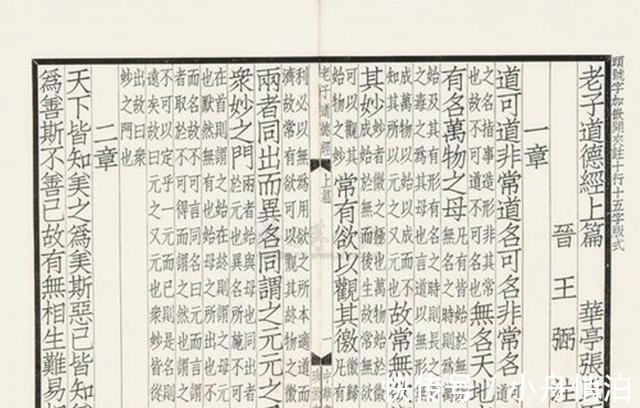 頭號字加歛開夾註十行十五字版式
老子道德經上篇 華亭張
晉 王 弼 注
一章
道可道非常道名可名非常名
之名指事造形非其常
也故不可道不可名也
無名天地
有名萬物之母
凡有皆始於無
時則爲萬物
始及其有形有名之時則長之
之毒之爲其母也言道以無形
成萬物以始以成而不
知其所以元之又元也
故常無
其妙
妙者微之極也萬物始於微
而後成始於無而後生故常無欲
可以觀其
始物之妙
常有欲以觀其徼
徼歸
凡有
老子道德經 上篇 一
利必以無爲用欲之所本適道而
濟故常有欲可以觀其終物之徼
兩者同出而異名同謂之元元之
衆妙之門
兩者始與母也同出者
於元也異名所施不可
在首則謂之始在終則謂之母元
也默然無有也始母之所出也不
而名故不可言同名曰元而言謂
者取於不可得而謂之然也
不可以定乎一元而已則是名
遠矣故曰元之又元也衆妙皆從
出故曰衆
妙之門也
二章
天下皆知美之爲美斯惡已皆知
爲善斯不善已故有無相生難易相
快传号 / 小舟漂泊